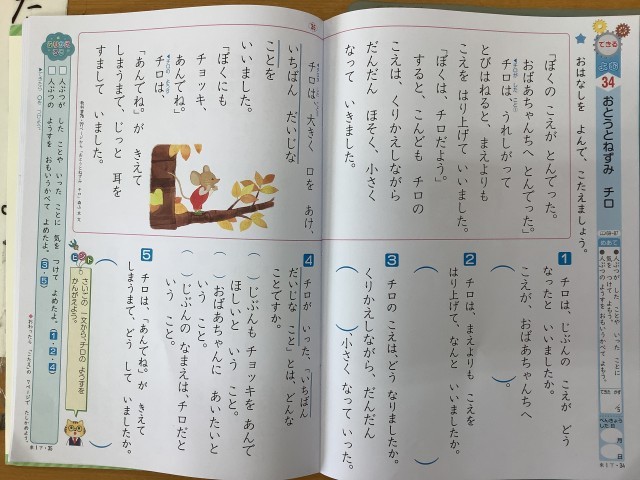 できる
よむ
34 おとうとねずみ チロ
おはなしを よんで、こたえましょう。
めあて
●人ぶつが した ことや いった ことに 気を つけて よもう。
●人ぶつの ようすを おもいうかべて よもう。
べんきょうした日
月
日
「ぼくの こえが とんでった。
おばあちゃんちへ とんでった。」
チロは、うれしがって
とびはねると、まえよりも
こえを はり上げて いいました。
「ぼくは、チロだよう。」
すると、こんども チロの
こえは、くりかえしながら
だんだん ほそく、小さく
なって いきました。
チロは、大きく 口を あけ、
いちばん だいじな
ことを
いいました。
「ぼくにも
チョッキ、
あんてね。」
チロは、
「あんてね。」が きえて
しまうまで、じっと 耳を
すまして いました。
1 チロは、じぶんの こえが どう
なったと いいましたか。
こえが、おばあちゃんちへ
( )。
2 チロは、まえよりも こえを
はり上げて、なんと いいましたか。
( )
3 チロの こえは、どう なりましたか。
くりかえしながら、だんだん
( )小さく なって いった。
4 チロが いった、「いちばん
だいじな こと」とは、どんな
ことですか。
( )じぶんも チョッキを あんで
ほしいと いう こと。
( )おばあちゃんに あいたいと
いう こと。
( )じぶんの なまえは、チロだと
いう こと。
5 チロは、「あんてね。」が きえて
しまうまで、どう して いましたか。
( )
ヒント
さいごの 一文から、チロの ようすを
かんがえよう。
□人ぶつが した ことや いった ことに 気を つけて よめたよ。(1・2・4)
□人ぶつの ようすを おもいうかべて よめたよ。(3・5)